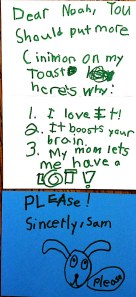 Dear Noah, You
Should put more
Cinimon on my
Toast
here's why:
1. I love it!
2. It boosts your
brain.
3. My mom lets
me have a
LOT!
PLEASE!
Sincetly, Sam
Please